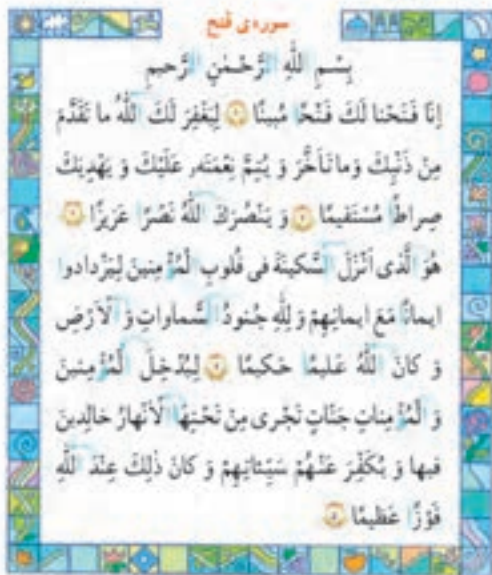 سوره‌ی فتح
بِسْمِ اللّٰهِ الرَّحْمٰنِ الرَّحیمِ
اِنّا فَتَحْنا لَكَ فَتْحًا مُبینًا ۱ لِیَغْفِرَ لَكَ اللّٰهُ ما تَقَدَّمَ
مِنْ ذَنْبِكَ وَ ما تَاَخَّرَ وَ یُتِمَّ نِعْمَتَه عَلَیْكَ وَ یَهْدِیَكَ
صِراطًا مُسْتَقیمًا ۲ وَ یَنْصُرَكَ اللّٰهُ نَصْرًا عَزیزًا ۳
هُوَ الَّذی اَنْزَلَ السَّكینَةَ فی قُلوبِ الْمُؤْمِنینَ لِیَزْدادوا
ایمانًا مَعَ ایمانِهِمْ وَ لِلّٰهِ جُنودُ السَّماواتِ وَ الْاَرْضِ
وَ كانَ اللّٰهُ عَلیمًا حَكیمًا ۴ لِیُدْخِلَ الْمُؤْمِنینَ
وَ الْمُؤْمِناتِ جَنّاتٍ تَجْری مِنْ تَحْتِهَا الْاَنْهارُ خالِدینَ
فیها وَ یُكَفِّرَ عَنْهُمْ سَیِّئاتِهِمْ وَ كانَ ذٰلِكَ عِنْدَ اللّٰهِ
فَوْزًا عَظیمًا ۵